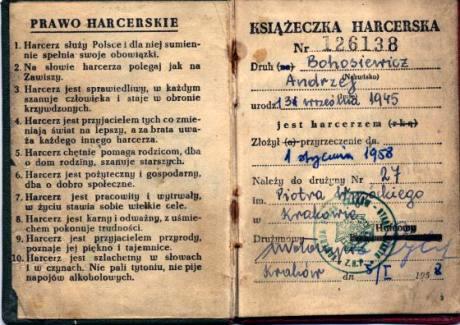 PRAWO HARCERSKIE
1. Harcerz służy Polsce i dla niej sumien-
nie spełnia swoje obowiązki.
2. Na słowie harcerza polegaj jak na
Zawiszy.
3. Harcerz jest sprawiedliwy, w każdym
szanuje człowieka i staje w obronie
krzywdzonych.
4. Harcerz jest przyjacielem tych co zmie-
niają świat na lepszy, a za brata uwa-
ża każdego innego harcerza.
5. Harcerz chętnie pomaga rodzicom, dba
o dom rodziny, szanuje starszych.
6. Harcerz jest pożyteczny i gospodarny,
dba o dobro społeczne.
7. Harcerz jest pracowity i wytrwały,
w życiu stawia sobie wielkie cele.
8. Harcerz jest karny i odważny, z uśmie-
chem pokonuje trudności.
9. Harcerz jest przyjacielem przyrody,
poznaje jej piękno i tajemnice.
10. Harcerz jest szlachetny w słowach
i w czynach. Nie pali tytoniu, nie pije
napojów alkoholowych.
KSIĄŻECZKA HARCERSKA
Nr 126138
Druh (na) Bohosiewicz
(Nazwisko)
Andrzej
urodz. 1945
jest harcerzem (rką)
Złożył (a) przyrzeczenie dn.
1 stycznia 1958
Należy do drużyny Nr 27
im. Piotra
w Krakowie
Hufcowy
Drużynowy
Z.H.P.
Kraków dn 8/I 1958